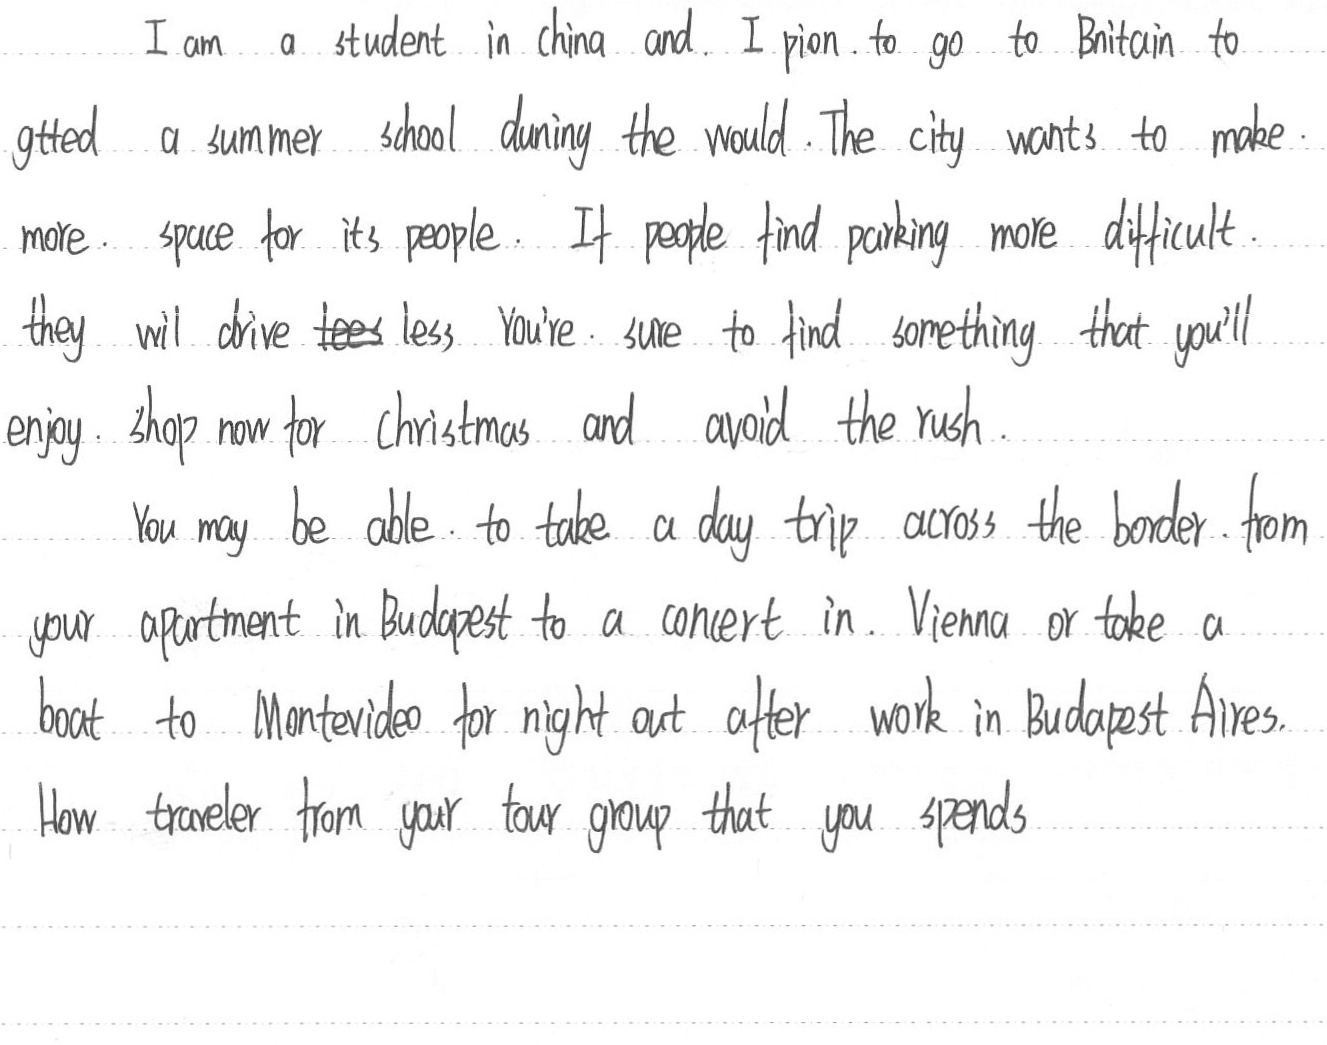 I am a student in china and. I pion. to go to Bnitain to
gtted a summer school duning the would. The city wants to make.
more. space for its people. If people find parking more difficult.
they wil drive less You're. sure to find something that you'll
enjoy. shop now for christmas and avoid the rush.
You may be able. to take a day trip across the border. from
your apartment in Budapest to a concert in. Vienna or take a
boat to Montevideo for night out after work in Budapest Aires.
How traveler from your tour group that you spends